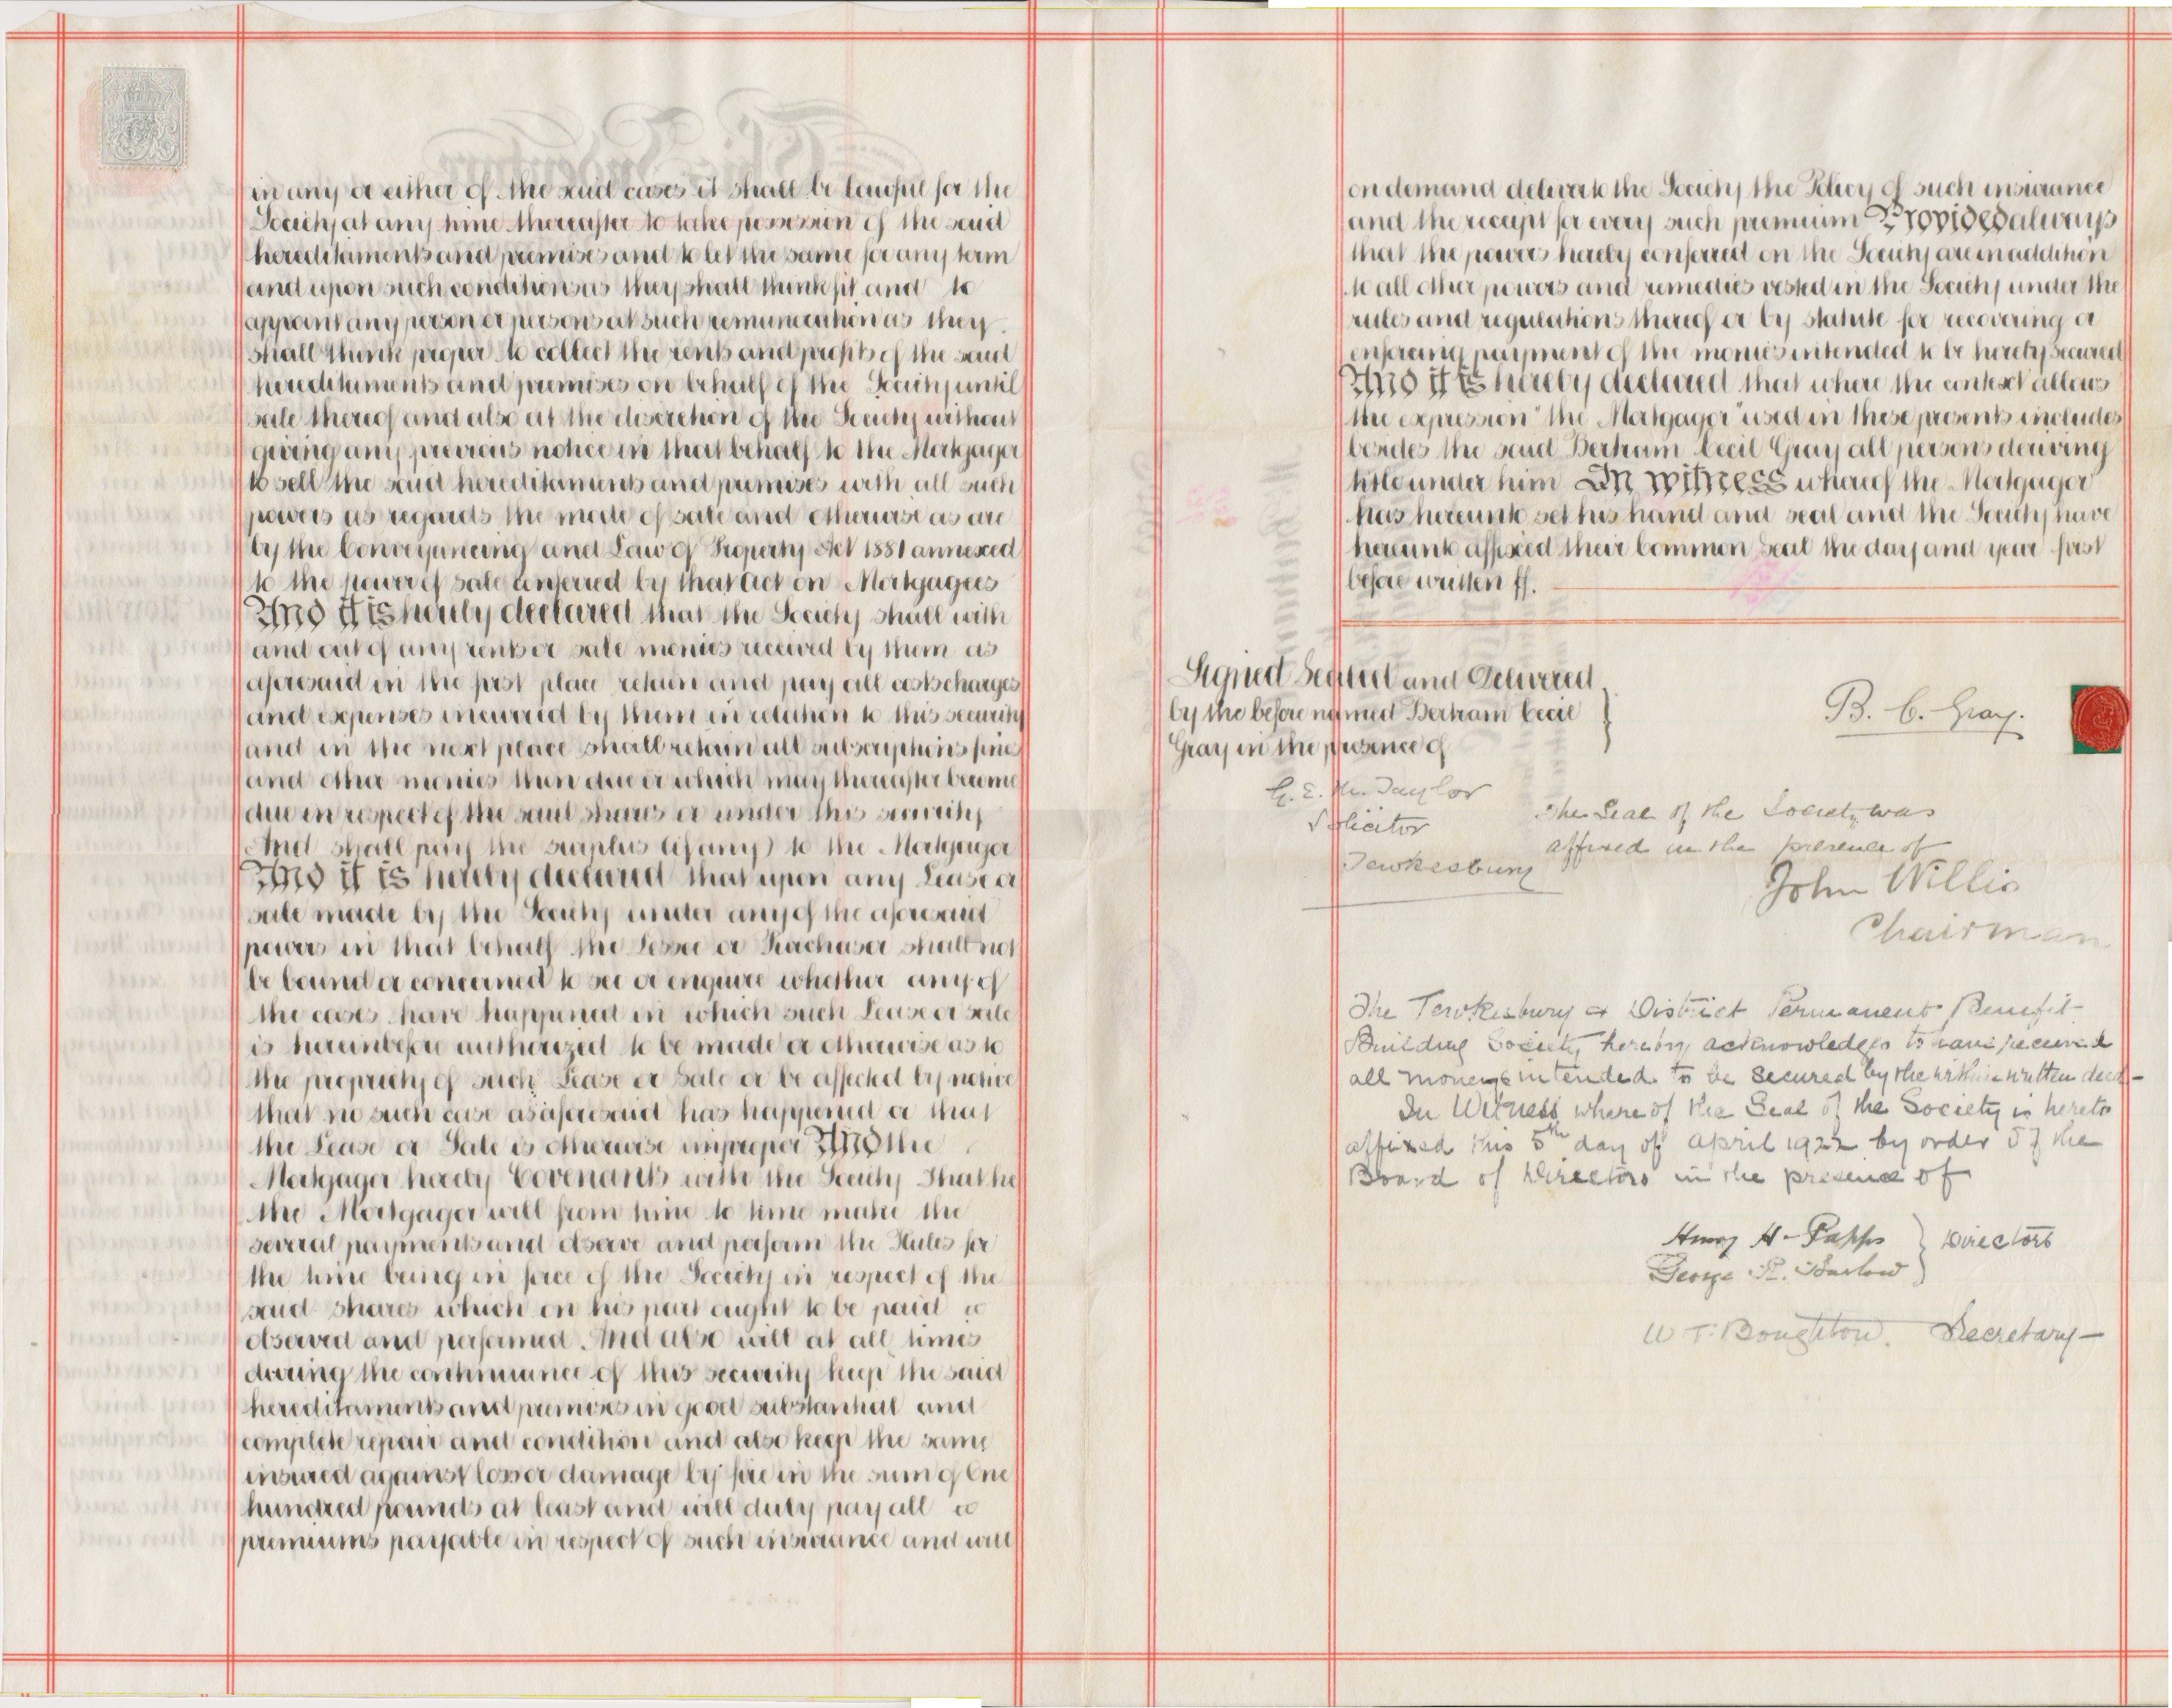 in any or either of the said cases it shall be lawful for the
Society at any time thereafter to take possession of the said
hereditaments and premises and to let the same for any term
and upon such conditions as they shall think fit and to
appoint any person or persons at such remuneration as they
shall think proper to collect the rents and profits of the said
hereditaments and premises on behalf of the Society until
sale thereof and also at the discretion of the Society without
giving any previous notice in that behalf to the Mortgagor
to sell the said hereditaments and premises with all such
powers as regards the mode of sale and otherwise as are
by the Conveyancing and Law of Property Act 1881 annexed
to the power of sale conferred by that Act on Mortgagees
And it is hereby declared that the Society shall with
and out of any rents or sale monies received by them as
aforesaid in the first place retain and pay all costs charges
and expenses incurred by them in relation to this security
and in the next place shall retain all subscriptions fines
and other monies then due or which may thereafter become
due in respect of the said shares or under this security
And shall pay the surplus (if any) to the Mortgagor
And it is hereby declared that upon any Lease or
sale made by the Society under any of the aforesaid
powers in that behalf the Lessee or Purchaser shall not
be bound or concerned to see or enquire whether any of
the cases have happened in which such Lease or sale
is hereinbefore authorized to be made or otherwise as to
the propriety of such Lease or Sale or be affected by notice
that no such case as aforesaid has happened or that
the Lease or Sale is otherwise improper And the
Mortgagor hereby Covenants with the Society That he
the Mortgagor will from time to time make the
several payments and observe and perform the Rules for
the time being in force of the Society in respect of the
said shares which on his part ought to be paid
observed and performed. And also will at all times
during the continuance of this security keep the said
hereditaments and premises in good substantial and
complete repair and condition and also keep the same
insured against loss or damage by fire in the sum of One
hundred pounds at least and will duly pay all
premiums payable in respect of such insurance and will
on demand deliver to the Society the Policy of such insurance
and the receipt for every such premium Provided always
that the powers hereby conferred on the Society are in addition
to all other powers and remedies vested in the Society under the
rules and regulations thereof or by statute for recovering or
enforcing payment of the monies intended to be hereby secured
And it is hereby declared that where the context allows
the expression "the Mortgagor" used in these presents includes
besides the said Bertram Cecil Gray all persons deriving
title under him In witness whereof the Mortgagor
has hereunto set his hand and seal and the Society have
hereunto affixed their Common Seal the day and year first
before written
Signed Sealed and Delivered
by the before named Bertram Cecil
Gray in the presence of
B. C. Gray.
Taylor
Solicitor
Tewkesbury
The Seal of the Society was
affixed in the presence of
John Willis
Chairman
The Tewkesbury & District Permanent Benefit
Building Society hereby acknowledges to have received
all moneys intended to be secured by the within written deed -
In Witness whereof the Seal of the Society is hereto
affixed this 5th day of April 1922 by order of the
Board of Directors in the presence of
H. Papps
George R. Barlow
Directors
W T. Boughton. Secretary -